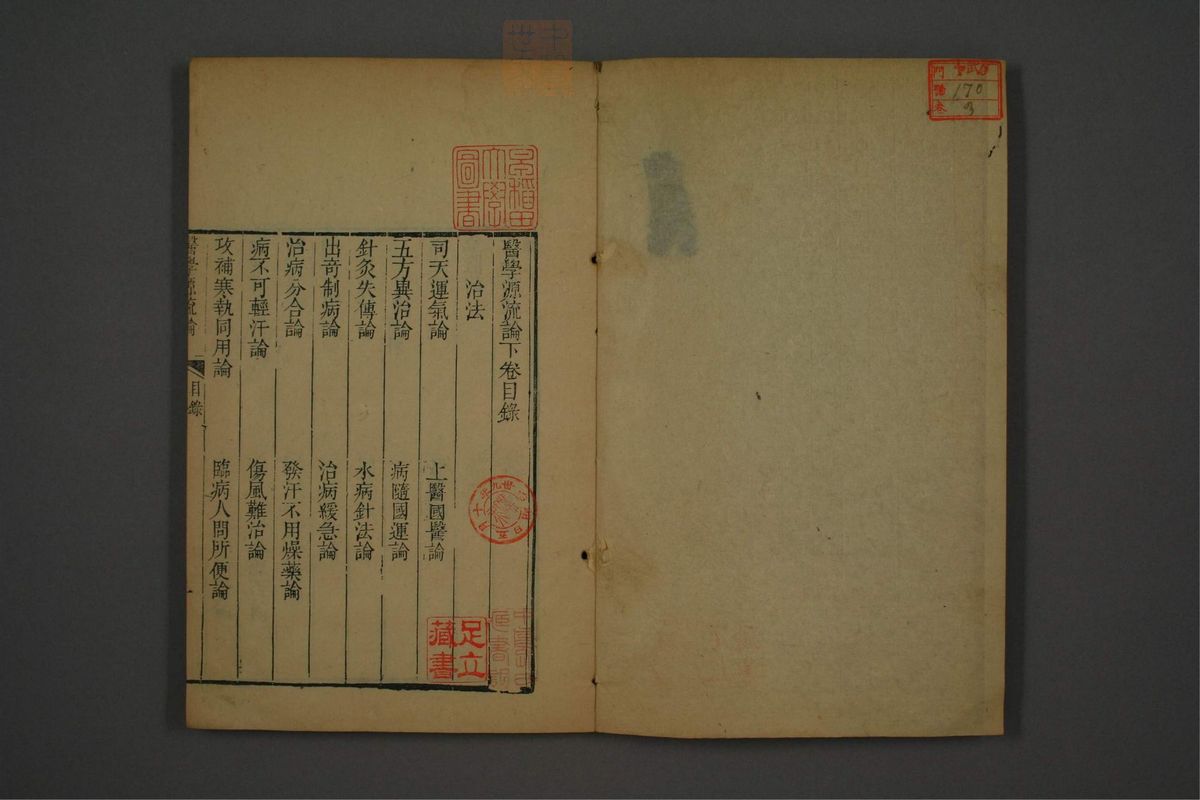 醫學源流論下卷目錄
治法
司天運氣論 上醫國醫論
五方異治論 病隨國運論
針灸失傳論 水病針法論
出奇制病論 治病緩急論
治病分合論 發汗不用燥藥論
病不可輕汗論 傷風難治論
攻補寒熱同用論 臨病人問所便論
醫學源流論 目錄
早稻田大學圖書
足立藏書
門
號
卷
170
3